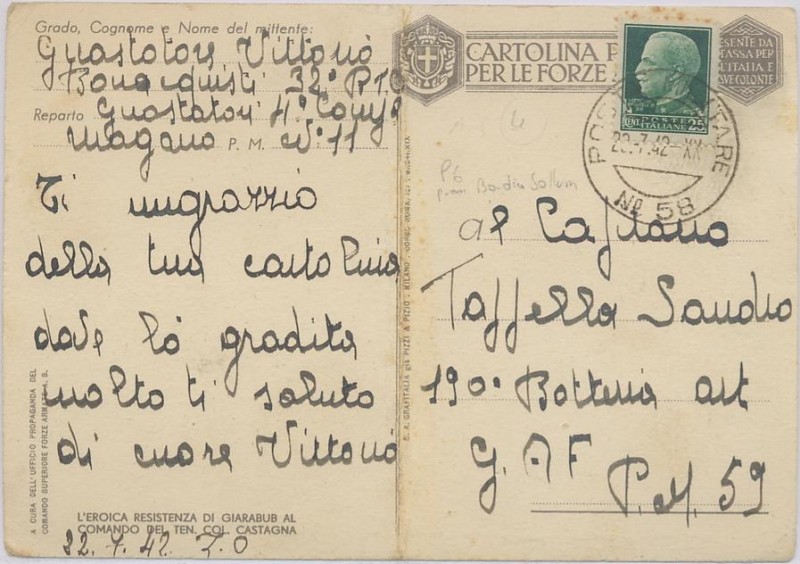 Grado, Cognome e Nome del mittente:
Guastatore Vittorio
Bonacquisti 32° BTG
Reparto Guastatori 4° Comp
P. M. N° 11
Ti ringrazzio
della tua cartolina
dove lò gradita
molto ti saluto
di cuore Vittorio
A CURA DELL'UFFICIO PROPAGANDA DEL
COMANDO SUPERIORE FORZE ARMATE A. S.
L'EROICA RESISTENZA DI GIARABUB AL
COMANDO DEL TEN. COL. CASTAGNA
22. 7. 42. Z. O
S. A. GRAFITALIA già PIZZI & PIZIO - MILANO
CARTOLINA P
PER LE FORZE
ESENTE DA
TASSA PER
L'ITALIA E
COLONIE
POSTE
ITALIANE
CENT. 25
POSTA MILITARE
29.7.42-XX
No 58
P6
Bardia Sollum
al Caporano
Taffella Sandro
190° Batteria art
G. A F
P. M. 59